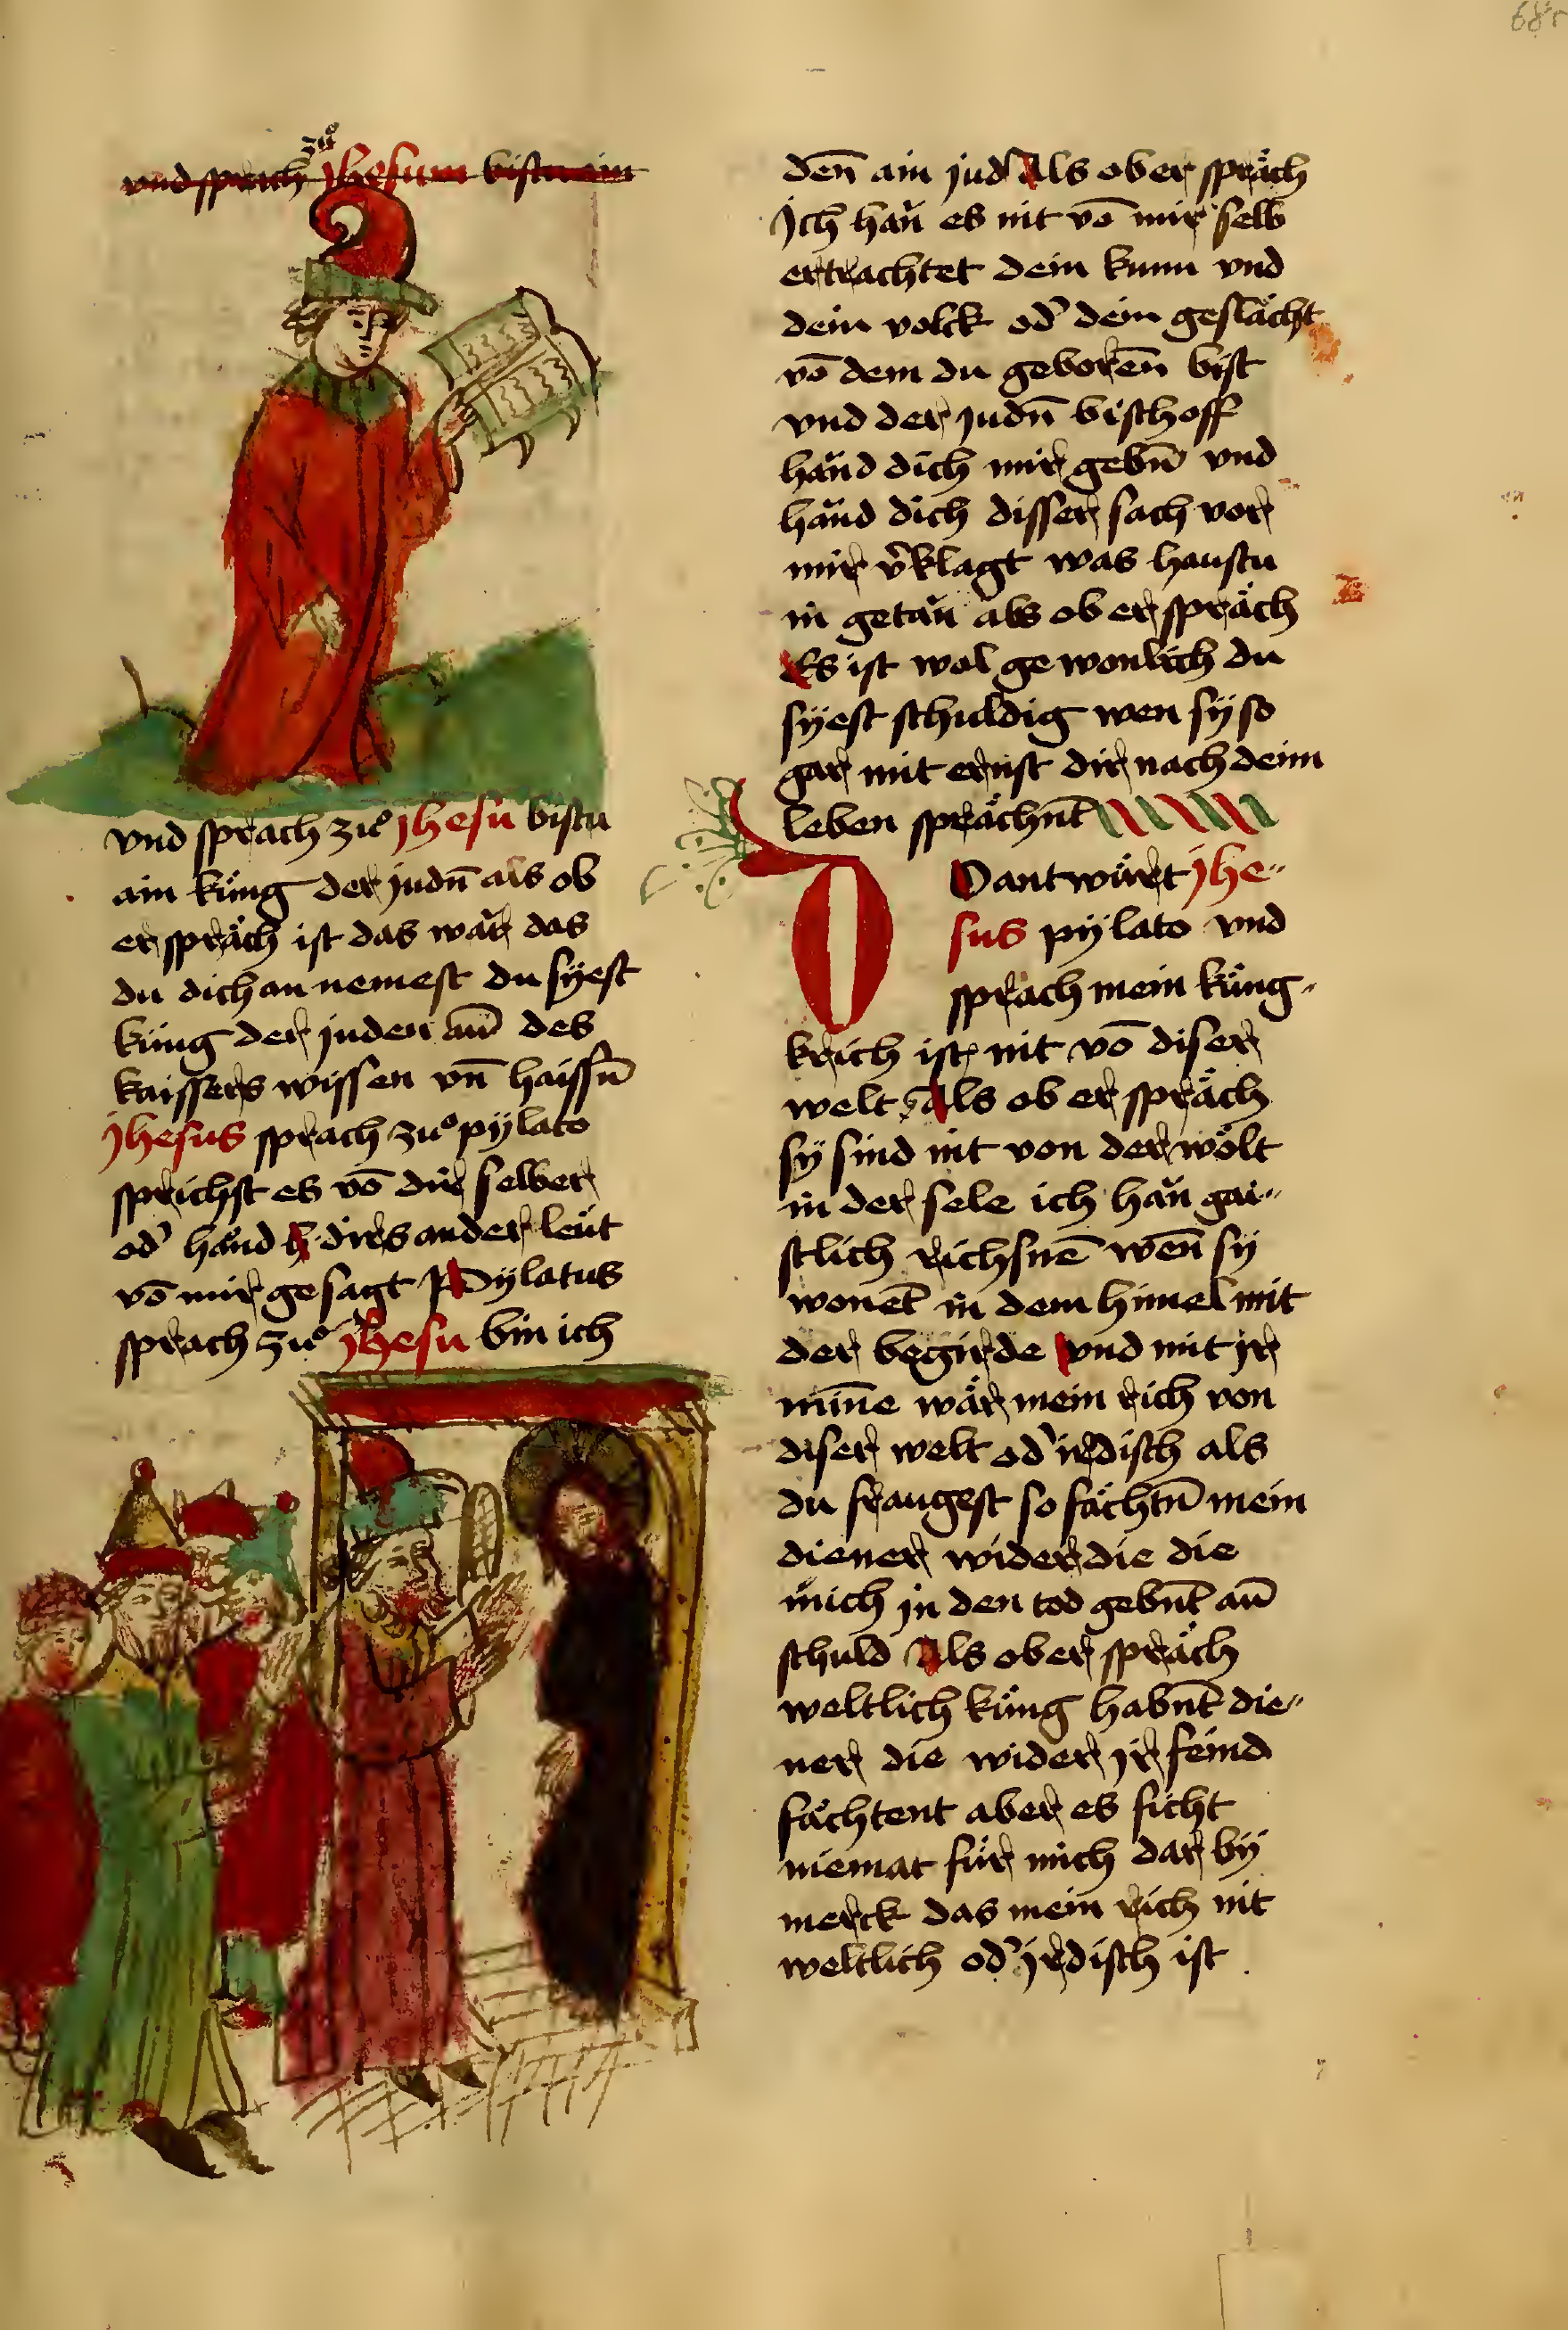 68r
vnd sprach zuͦ jhesum bistu ain
vnd sprach zuͦ jhesu bistu
ain küng der judn̄ als ob
er spräch ist das wär das
du dich an nemest du sÿest
küng der juden an̄ des
kaissers wissen vn̄ haissn̄
jhesus sprach zuͦ pÿlato
sprichst es vō dir selber
od' händ dirs ander leüt
vō mir gesagt Pÿlatus
sprach zuͦ jhesu bin ich
den̄ ain jud Als ob er spräch
jch haün es nit vō mir selb
ertrachtet dein kunn vnd
dein volck od' dein geslächt
vō dem du geboren̄ bist
vnd der judn̄ bischoff
händ dich mir gebn̄ vnd
händ dich disser sach vor
mir v'klagt was haustu
in getaün als ob er spräch
Es ist wol gewonlich du
sÿest schuldig wen sÿ so
gar mit ernst dir nach deim
leben sprächn̄t
Do antwürt jhe-
sus pÿlato vnd
sprach mein küng-
krich ist nit vō diser
welt Als ob er spräch
sÿ sind nit von der wölt
in der sele ich haün gai-
stlich richsnē wen̄ sÿ
wonēt in dem himel mit
der begirde vnd mit jr
min̄e wär mein rich von
diser welt od' irdisch als
du fraugest so fächtn̄ mein
diener wider die die
mich jn den tod gebn̄t an̄
schuld Als ob er spräch
weltlich küng habn̄t die-
ner die wider jr feind
fächtent aber es ficht
niemat für mich dar bÿ
merck das mein rich nit
weltlich od' jrdisch ist